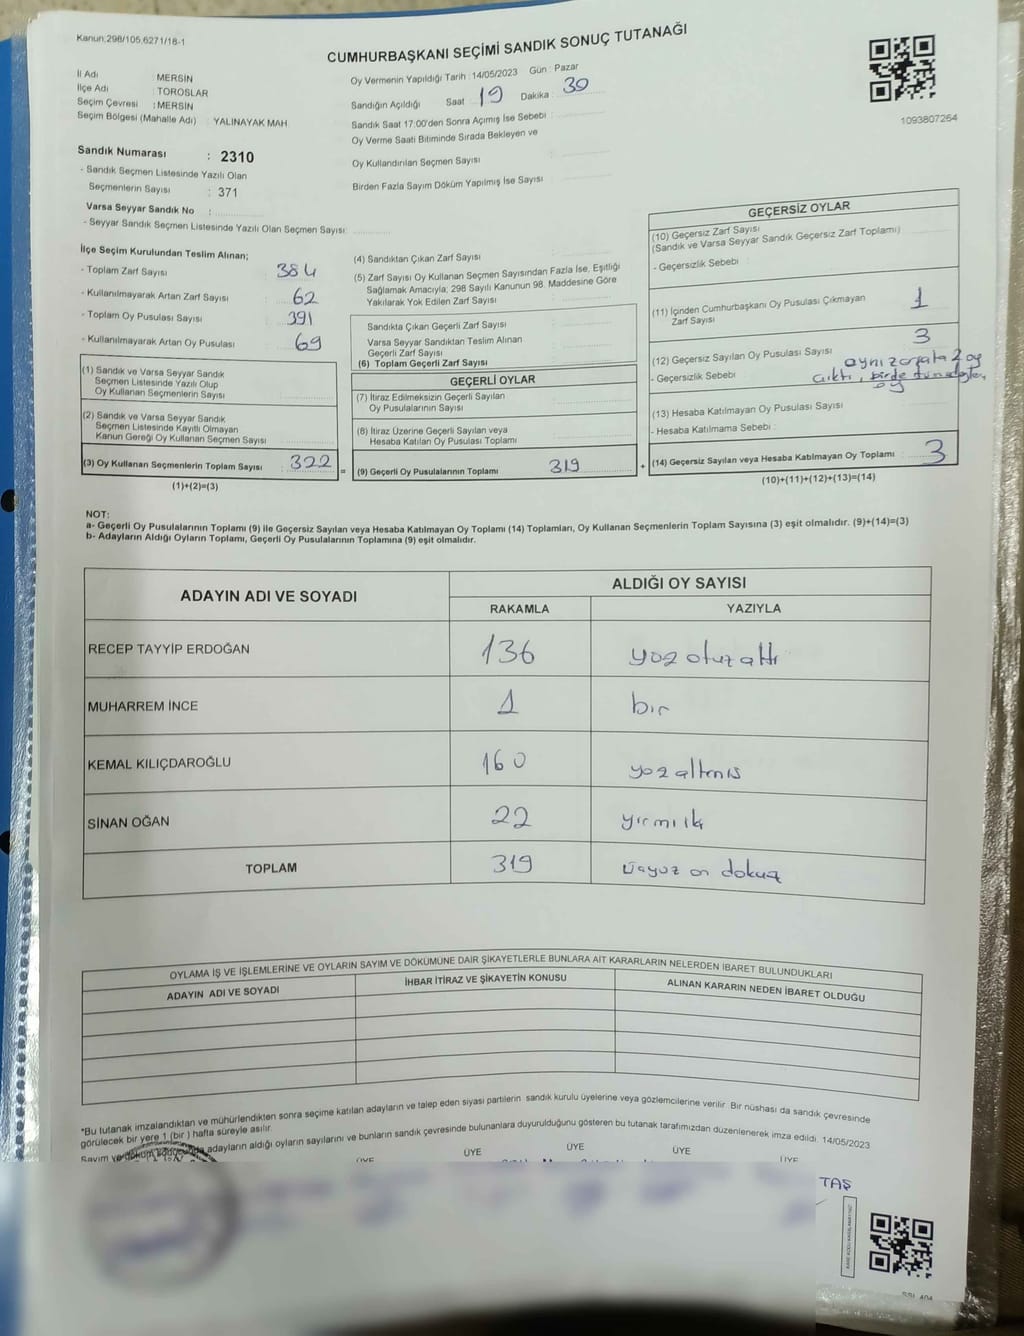 Kanun:298/105,6271/18-1
CUMHURBAŞKANI SEÇİMİ SANDIK SONUÇ TUTANAĞI
İl Adı MERSİN
İlçe Adı TOROSLAR
Seçim Çevresi : MERSİN
Seçim Bölgesi (Mahalle Adı) YALINAYAK MAH.
Oy Vermenin Yapıldığı Tarih : 14/05/2023 Gün : Pazar
Sandığın Açıldığı Saat 19 Dakika : 30
Sandık Saat 17:00'den Sonra Açımış İse Sebebi :
Oy Verme Saati Bitiminde Sırada Bekleyen ve
Oy Kullandırılan Seçmen Sayısı
Birden Fazla Sayım Döküm Yapılmış İse Sayısı
1093807264
Sandık Numarası : 2310
- Sandık Seçmen Listesinde Yazılı Olan
Seçmenlerin Sayısı : 371
Varsa Seyyar Sandık No :
- Seyyar Sandık Seçmen Listesinde Yazılı Olan Seçmen Sayısı:
İlçe Seçim Kurulundan Teslim Alınan;
- Toplam Zarf Sayısı 384
- Kullanılmayarak Artan Zarf Sayısı 62
- Toplam Oy Pusulası Sayısı 391
- Kullanılmayarak Artan Oy Pusulası 69
(1) Sandık ve Varsa Seyyar Sandık
Seçmen Listesinde Yazılı Olup
Oy Kullanan Seçmenlerin Sayısı
(2) Sandık ve Varsa Seyyar Sandık
Seçmen Listesinde Kayıtlı Olmayan
Kanun Gereği Oy Kullanan Seçmen Sayısı
(3) Oy Kullanan Seçmenlerin Toplam Sayısı : 322
(1)+(2)=(3)
(4) Sandıktan Çıkan Zarf Sayısı
(5) Zarf Sayısı Oy Kullanan Seçmen Sayısından Fazla İse, Eşitliği
Sağlamak Amacıyla; 298 Sayılı Kanunun 98. Maddesine Göre
Yakılarak Yok Edilen Zarf Sayısı
Sandıkta Çıkan Geçerli Zarf Sayısı
Varsa Seyyar Sandıktan Teslim Alınan
Geçerli Zarf Sayısı
(6) Toplam Geçerli Zarf Sayısı
GEÇERLİ OYLAR
(7) İtiraz Edilmeksizin Geçerli Sayılan
Oy Pusulalarının Sayısı
(8) İtiraz Üzerine Geçerli Sayılan veya
Hesaba Katılan Oy Pusulası Toplamı
= (9) Geçerli Oy Pusulalarının Toplamı 319
GEÇERSİZ OYLAR
(10) Geçersiz Zarf Sayısı
(Sandık ve Varsa Seyyar Sandık Geçersiz Zarf Toplamı)
- Geçersizlik Sebebi :
(11) İçinden Cumhurbaşkanı Oy Pusulası Çıkmayan
Zarf Sayısı 1
(12) Geçersiz Sayılan Oy Pusulası Sayısı 3
- Geçersizlik Sebebi aynı zarfata 2 oy
çıktı, birde
oy
(13) Hesaba Katılmayan Oy Pusulası Sayısı
- Hesaba Katılmama Sebebi :
+ (14) Geçersiz Sayılan veya Hesaba Katılmayan Oy Toplamı 3
(10)+(11)+(12)+(13)=(14)
NOT:
a- Geçerli Oy Pusulalarının Toplamı (9) ile Geçersiz Sayılan veya Hesaba Katılmayan Oy Toplamı (14) Toplamları, Oy Kullanan Seçmenlerin Toplam Sayısına (3) eşit olmalıdır. (9)+(14)=(3)
b- Adayların Aldığı Oyların Toplamı, Geçerli Oy Pusulalarının Toplamına (9) eşit olmalıdır.
ADAYIN ADI VE SOYADI ALDIĞI OY SAYISI
RAKAMLA YAZIYLA
RECEP TAYYİP ERDOĞAN 136 yoz otuz altı
MUHARREM İNCE 1 bir
KEMAL KILIÇDAROĞLU 160 yoz altmış
SİNAN OĞAN 22 yırmiik
TOPLAM 319 üçyuz on dokuz
OYLAMA İŞ VE İŞLEMLERİNE VE OYLARIN SAYIM VE DÖKÜMÜNE DAİR ŞİKAYETLERLE BUNLARA AİT KARARLARIN NELERDEN İBARET BULUNDUKLARI
ADAYIN ADI VE SOYADI İHBAR İTİRAZ VE ŞİKAYETİN KONUSU ALINAN KARARIN NEDEN İBARET OLDUĞU
*Bu tutanak imzalandıktan ve mühürlendikten sonra seçime katılan adayların ve talep eden siyasi partilerin sandık kurulu üyelerine veya gözlemcilerine verilir. Bir nüshası da sandık çevresinde
görülecek bir yere 1 (bir) hafta süreyle asılır.
Sayım ve döküm sonucunda adayların aldığı oyların sayılarını ve bunların sandık çevresinde bulunanlara duyurulduğunu gösteren bu tutanak tarafımızdan düzenlenerek imza edildi. 14/05/2023
ÜYE ÜYE ÜYE ÜYE ÜYE
TAŞ